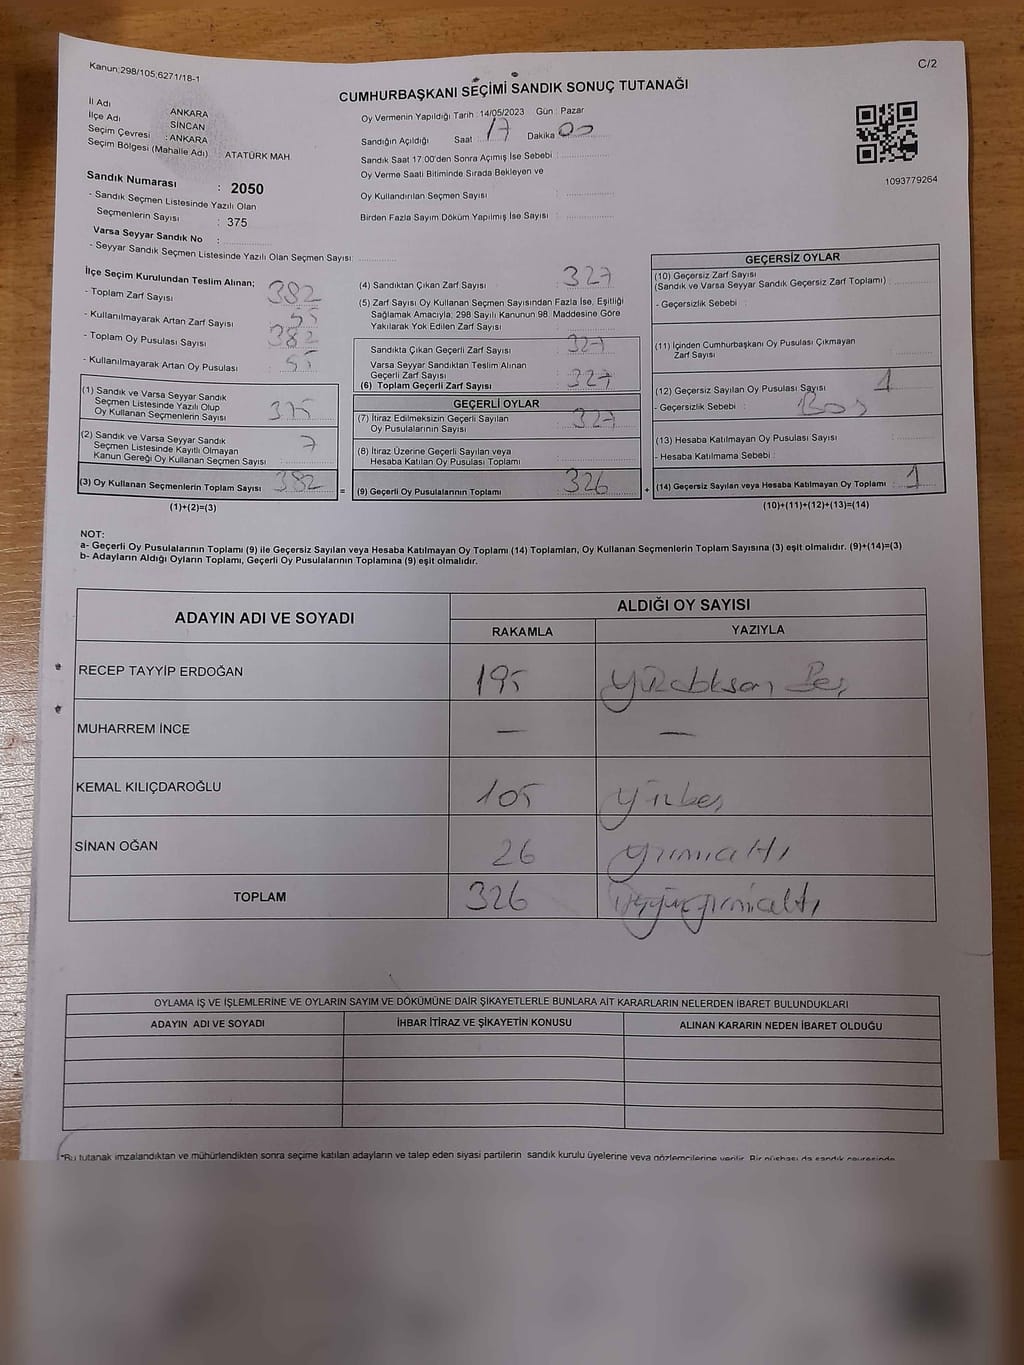 Kanun;298/105;6271/18-1
C/2
CUMHURBAŞKANI SEÇİMİ SANDIK SONUÇ TUTANAĞI
İl Adı ANKARA
İlçe Adı SİNCAN
Seçim Çevresi : ANKARA
Seçim Bölgesi (Mahalle Adı) : ATATÜRK MAH.
Sandık Numarası : 2050
- Sandık Seçmen Listesinde Yazılı Olan
Seçmenlerin Sayısı : 375
Varsa Seyyar Sandık No :
- Seyyar Sandık Seçmen Listesinde Yazılı Olan Seçmen Sayısı:
Oy Vermenin Yapıldığı Tarih : 14/05/2023 Gün : Pazar
Sandığın Açıldığı Saat : 17 Dakika 00
Sandık Saat 17:00'den Sonra Açımış İse Sebebi :
Oy Verme Saati Bitiminde Sırada Bekleyen ve
Oy Kullandırılan Seçmen Sayısı :
Birden Fazla Sayım Döküm Yapılmış İse Sayısı :
1093779264
İlçe Seçim Kurulundan Teslim Alınan;
- Toplam Zarf Sayısı : 382
- Kullanılmayarak Artan Zarf Sayısı : 55
- Toplam Oy Pusulası Sayısı : 382
- Kullanılmayarak Artan Oy Pusulası : 55
(1) Sandık ve Varsa Seyyar Sandık
Seçmen Listesinde Yazılı Olup
Oy Kullanan Seçmenlerin Sayısı : 375
(2) Sandık ve Varsa Seyyar Sandık
Seçmen Listesinde Kayıtlı Olmayan
Kanun Gereği Oy Kullanan Seçmen Sayısı : 7
(3) Oy Kullanan Seçmenlerin Toplam Sayısı : 382
(1)+(2)=(3)
(4) Sandıktan Çıkan Zarf Sayısı : 327
(5) Zarf Sayısı Oy Kullanan Seçmen Sayısından Fazla İse, Eşitliği
Sağlamak Amacıyla; 298 Sayılı Kanunun 98. Maddesine Göre
Yakılarak Yok Edilen Zarf Sayısı :
Sandıkta Çıkan Geçerli Zarf Sayısı : 327
Varsa Seyyar Sandıktan Teslim Alınan
Geçerli Zarf Sayısı :
(6) Toplam Geçerli Zarf Sayısı : 327
GEÇERLİ OYLAR
(7) İtiraz Edilmeksizin Geçerli Sayılan
Oy Pusulalarının Sayısı : 327
(8) İtiraz Üzerine Geçerli Sayılan veya
Hesaba Katılan Oy Pusulası Toplamı :
= (9) Geçerli Oy Pusulalarının Toplamı : 326
GEÇERSİZ OYLAR
(10) Geçersiz Zarf Sayısı
(Sandık ve Varsa Seyyar Sandık Geçersiz Zarf Toplamı) :
- Geçersizlik Sebebi :
(11) İçinden Cumhurbaşkanı Oy Pusulası Çıkmayan
Zarf Sayısı :
(12) Geçersiz Sayılan Oy Pusulası Sayısı : 1
- Geçersizlik Sebebi : Boş
(13) Hesaba Katılmayan Oy Pusulası Sayısı :
- Hesaba Katılmama Sebebi :
+ (14) Geçersiz Sayılan veya Hesaba Katılmayan Oy Toplamı : 1
(10)+(11)+(12)+(13)=(14)
NOT:
a- Geçerli Oy Pusulalarının Toplamı (9) ile Geçersiz Sayılan veya Hesaba Katılmayan Oy Toplamı (14) Toplamları, Oy Kullanan Seçmenlerin Toplam Sayısına (3) eşit olmalıdır. (9)+(14)=(3)
b- Adayların Aldığı Oyların Toplamı, Geçerli Oy Pusulalarının Toplamına (9) eşit olmalıdır.
ADAYIN ADI VE SOYADI
ALDIĞI OY SAYISI
RAKAMLA YAZIYLA
RECEP TAYYİP ERDOĞAN 195 yüzdoksan Beş
MUHARREM İNCE — —
KEMAL KILIÇDAROĞLU 105 yüzbeş
SİNAN OĞAN 26 yirmialtı
TOPLAM 326 üçyüzyirmialtı
OYLAMA İŞ VE İŞLEMLERİNE VE OYLARIN SAYIM VE DÖKÜMÜNE DAİR ŞİKAYETLERLE BUNLARA AİT KARARLARIN NELERDEN İBARET BULUNDUKLARI
ADAYIN ADI VE SOYADI İHBAR İTİRAZ VE ŞİKAYETİN KONUSU ALINAN KARARIN NEDEN İBARET OLDUĞU
*Bu tutanak imzalandıktan ve mühürlendikten sonra seçime katılan adayların ve talep eden siyasi partilerin sandık kurulu üyelerine veya gözlemcilerine verilir. Bir nüshası da sandık çevresinde